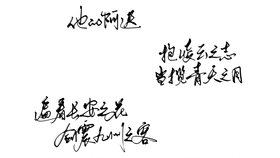 抱凌云之志
当揽青天之月
遍看长安之花
震九州之客